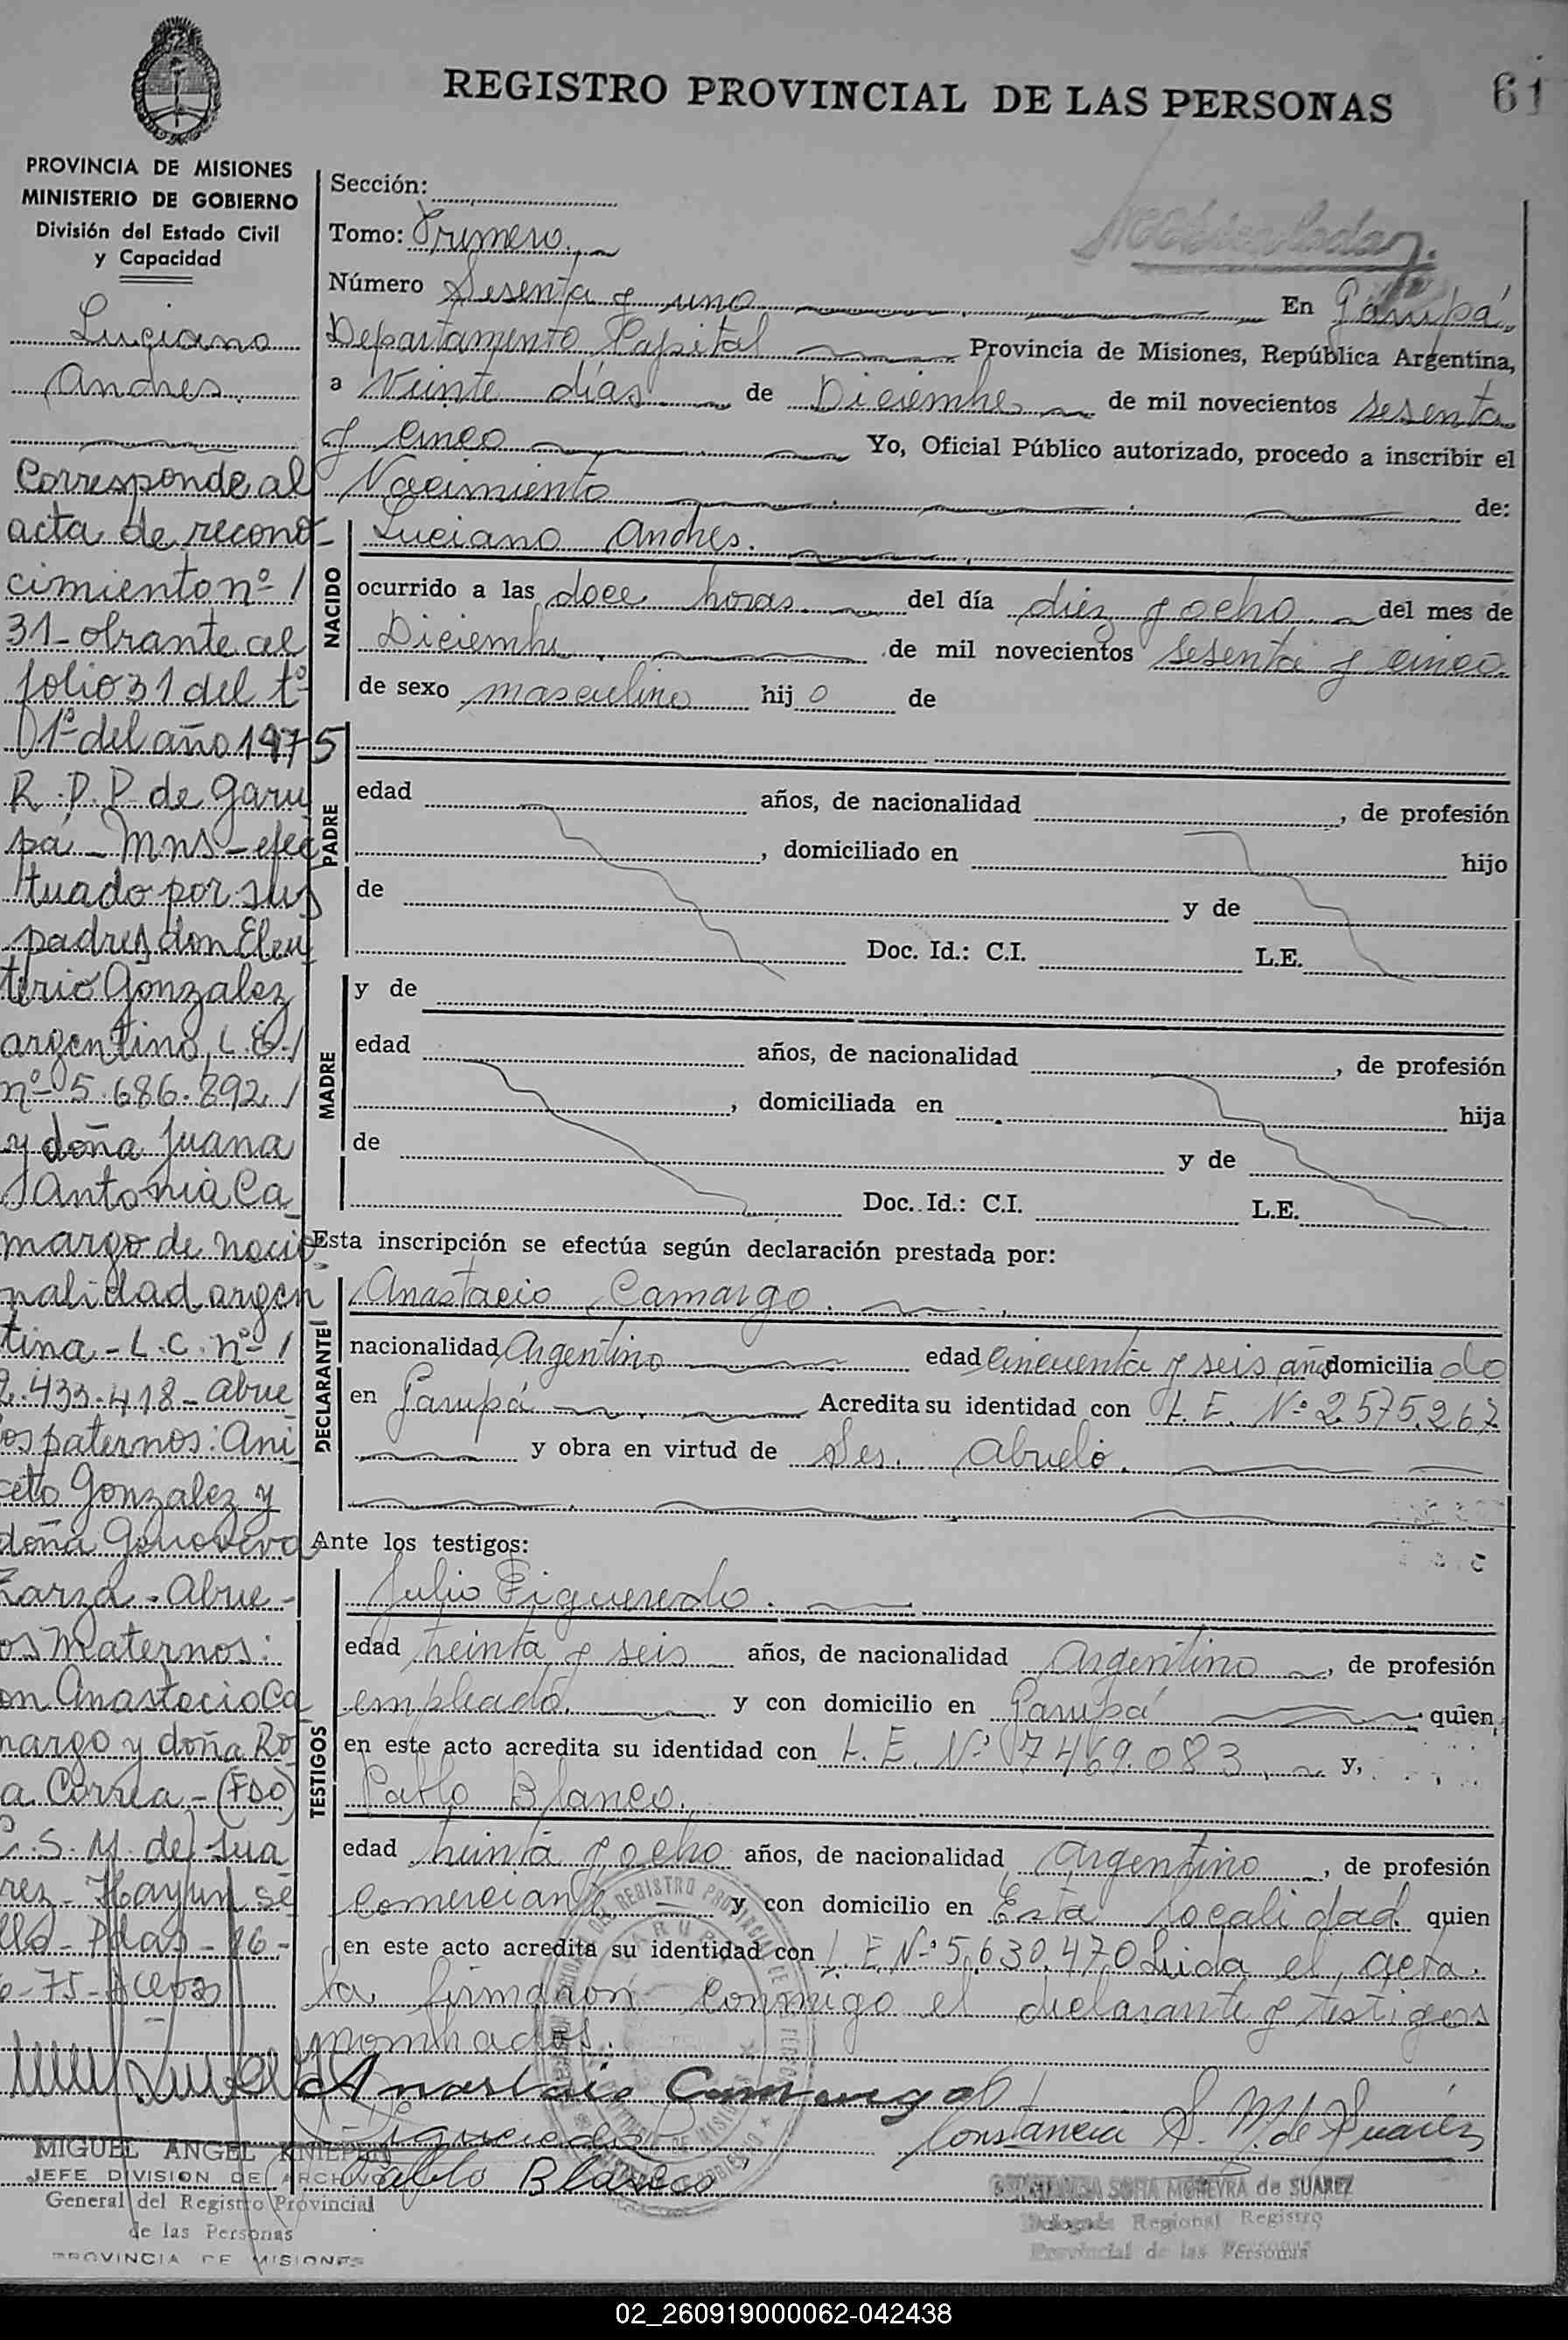 REGISTRO PROVINCIAL DE LAS PERSONAS
61
PROVINCIA DE MISIONES
MINISTERIO DE GOBIERNO
División del Estado Civil
y Capacidad
Luciano
Andres.
Corresponde al
acta de recono-
cimiento nº /
31 - obrante al
folio 31 del tº
1º del año 1975
R.P.P. de Garu
pá - Mns - efec
tuado por sus
padres don Eleu
terio Gonzalez
argentino, L.E. /
nº 5.686.892 /
y doña Juana
Antonia Ca
margo de nacio
nalidad argen
tina - L.C. nº /
2.433.418 - Abue
os paternos: Ani
ceto Gonzalez y
doña Genoveva
Zarza - Abue-
os Maternos:
on Anastacio Ca
margo y doña Ro
a Correa - (FDO)
C.S.M. de Sua
rez - Hay un se
llo - Pdas - 16 -
6 - 75 -
Sección:
Tomo: Primero.
Número Sesenta y uno En Garupá,
Departamento Capital Provincia de Misiones, República Argentina,
a Veinte días de Diciembre de mil novecientos sesenta
y cinco Yo, Oficial Público autorizado, procedo a inscribir el
Nacimiento de:
NACIDO
Luciano Andres.
ocurrido a las doce horas. del día diez y ocho. del mes de
Diciembre de mil novecientos sesenta y cinco.
de sexo masculino hijo de
PADRE
edad años, de nacionalidad , de profesión
, domiciliado en hijo
de y de
Doc. Id.: C.I. L.E.
MADRE
y de
edad años, de nacionalidad , de profesión
, domiciliada en hija
de y de
Doc. Id.: C.I. L.E.
Esta inscripción se efectúa según declaración prestada por:
DECLARANTE
Anastacio Camargo.
nacionalidad Argentino edad cincuenta y seis años domiciliado
en Garupá Acredita su identidad con L.E. Nº 2.575.267
y obra en virtud de Ser. Abuelo.
Ante los testigos:
TESTIGOS
Julio Figueredo.
edad treinta y seis años, de nacionalidad Argentino, de profesión
empleado. y con domicilio en Garupá quien,
en este acto acredita su identidad con L.E. Nº 7469.083 y,
Pablo Blanco.
edad treinta y ocho años, de nacionalidad Argentino, de profesión
Comerciante y con domicilio en Esta localidad. quien
en este acto acredita su identidad con L.E. Nº 5.630.470 Leida el acta.
la firmaron conmigo el declarante y testigos
nombrados.
Anastacio Camargo
Figueredo
Constancia S. M. de Suarez
Pablo Blanco
MIGUEL ANGEL
JEFE DIVISION DE ARCHIVO
General del Registro Provincial
de las Personas
PROVINCIA DE MISIONES
CONSTANCIA SOFIA MOREYRA de SUAREZ
Delegada Regional Registro
Provincial de las Personas
02_260919000062-042438